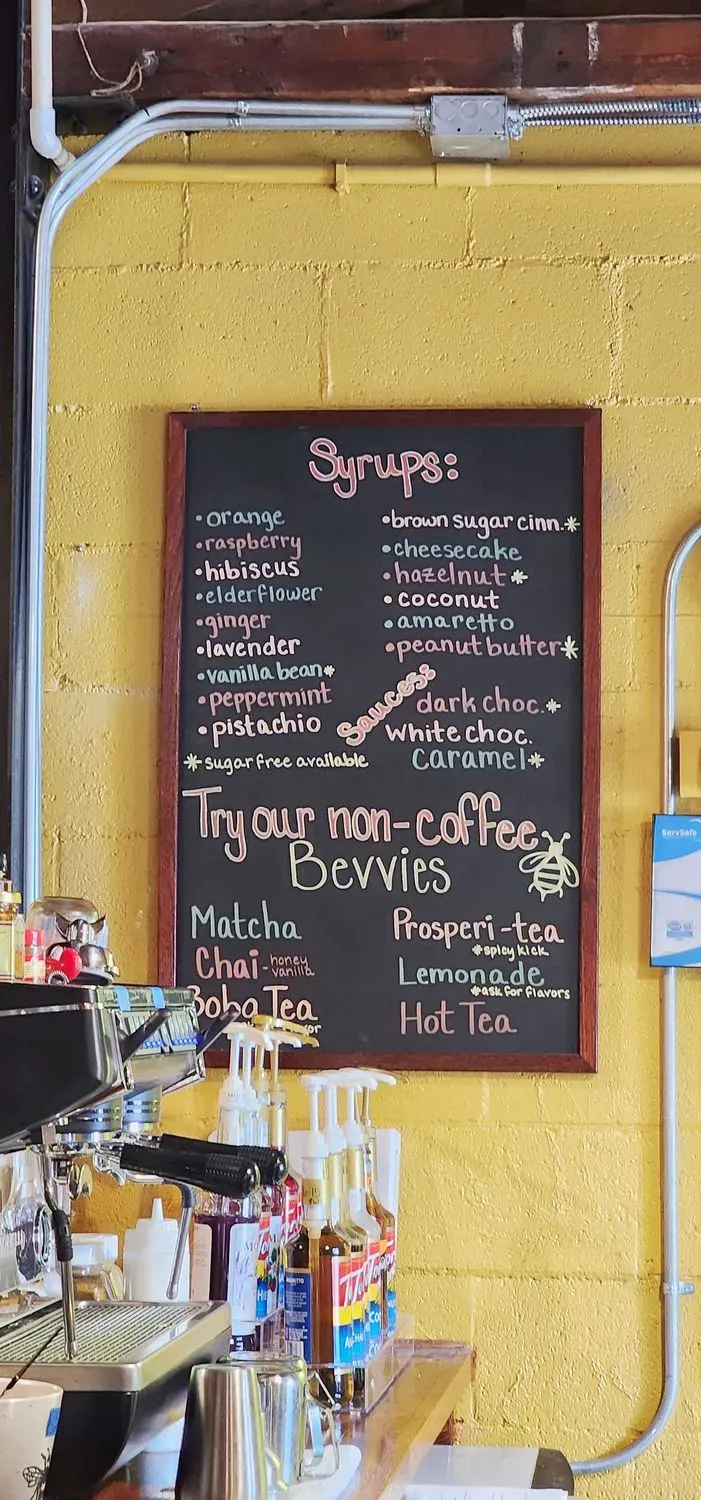 Syrups:
• orange
• raspberry
• hibiscus
• elderflower
• ginger
• lavender
• vanilla bean*
• peppermint
• pistachio
* sugar free available
• brown sugar cinn.*
• cheesecake
• hazelnut*
• coconut
• amaretto
• peanut butter*
Sauces:
dark choc.*
white choc.
caramel*
Try our non-coffee
Bevvies
Matcha
Chai - honey
vanilla
Boba Tea
Prosperi-tea
*spicy kick
Lemonade
*ask for flavors
Hot Tea
ServSafe